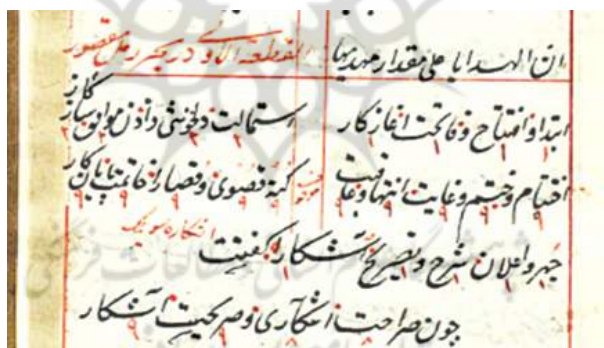 ان الهدایا علی مقدار مهدیها القطعة الاولی در بحر رمل مقصور
ابتدا و افتتاح و فاتحت اغاز کار استمالت دلخوشی دادن موافق ساز کار
اختتام و ختم و غایت انتها و عاقبت کنه و قصوی و قصارا خاتمت پایان کار
جهر و اعلان شرح و تصریح آشکارا گفتنت
چون صراحت آشکاری و صریحیت آشکار